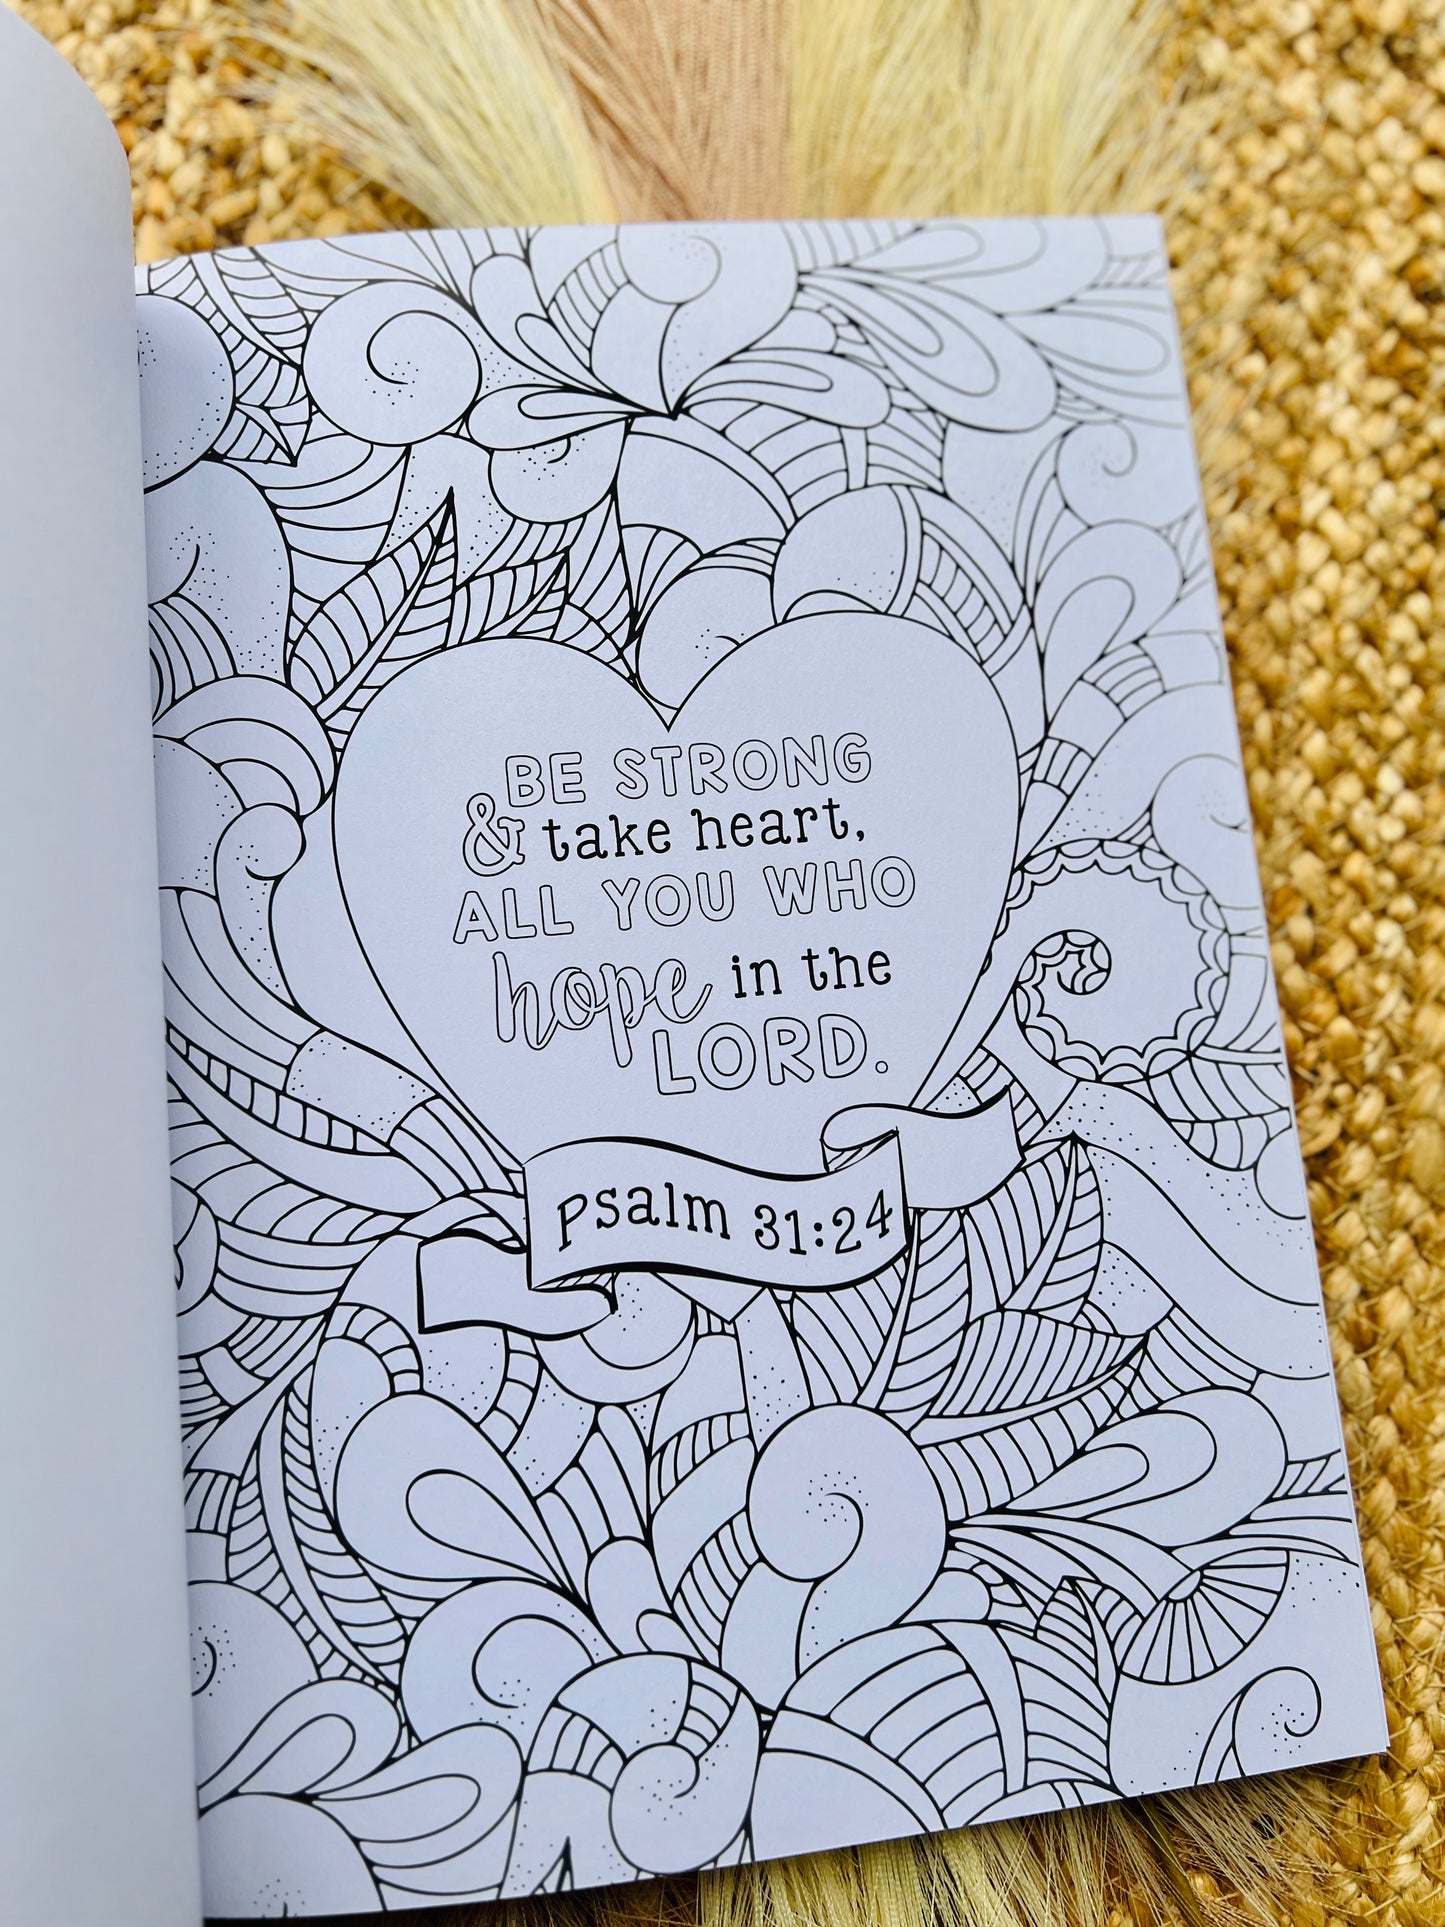 BE STRONG
& take heart,
ALL YOU WHO
hope in the
LORD.
Psalm 31:24